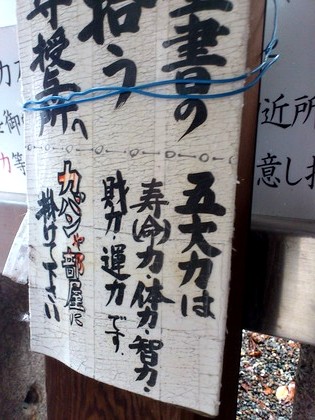 書の
拾う
守授与所へ
五大力は
寿(命)力・体力・智力・
財力・運力です。
カバンや部屋に
掛けて下さい
近所
意し
力
御
力等